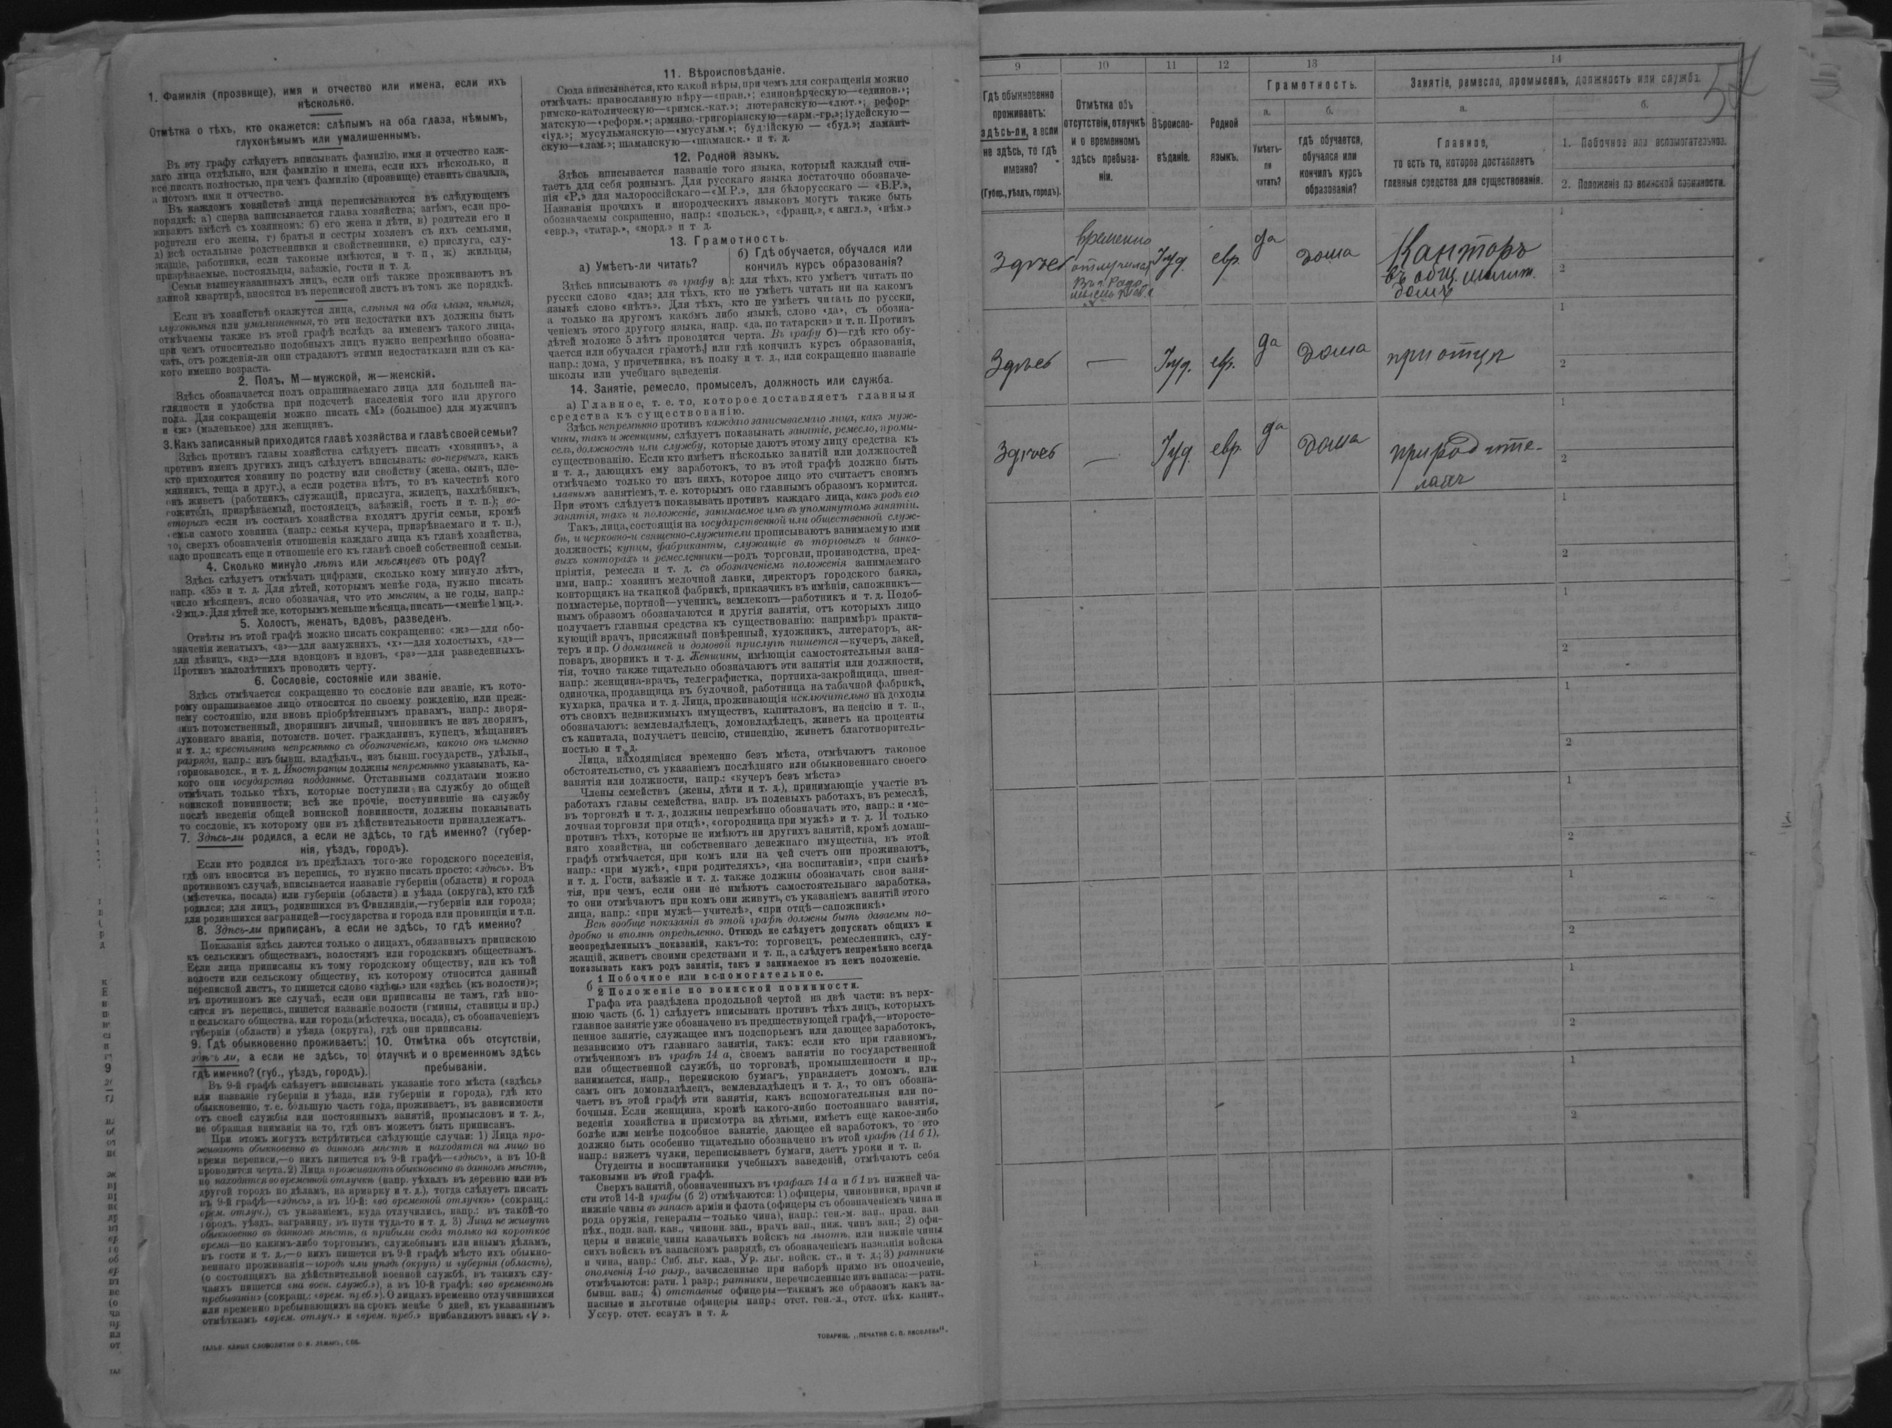 1. Фамилія (прозвище), имя и отчество или имена, если ихъ
нѣсколько.
Отмѣтка о тѣхъ, кто окажется: слѣпымъ на оба глаза, нѣмымъ,
глухонѣмымъ или умалишеннымъ.
Въ эту графу слѣдуетъ вписывать фамилію, имя и отчество каж-
даго лица отдѣльно, или фамилію и имена, если ихъ нѣсколько, и
все писать полностью, при чемъ фамилію (прозвище) ставить сначала,
а потомъ имя и отчество.
Въ каждомъ хозяйствѣ лица переписываются въ слѣдующемъ
порядкѣ: а) сперва записывается глава хозяйства; затѣмъ, если про-
живаютъ вмѣстѣ съ хозяиномъ: б) его жена и дѣти, в) родители его и
родители его жены, г) братья и сестры хозяевъ съ ихъ семьями,
д) всѣ остальные родственники и свойственники, е) прислуга, слу-
жащіе, работники, если таковые имѣются, и т. п., ж) жильцы,
призрѣваемые, постояльцы, заѣзжіе, гости и т. д.
Семьи вышеуказанныхъ лицъ, если онѣ также проживаютъ въ
данной квартирѣ, вносятся въ переписной листъ въ томъ же порядкѣ.
Если въ хозяйствѣ окажутся лица, слѣпыя на оба глаза, нѣмыя,
глухонѣмыя или умалишенныя, то эти недостатки ихъ должны быть
отмѣчаемы также въ этой графѣ вслѣдъ за именемъ такого лица.
при чемъ относительно подобныхъ лицъ нужно непремѣнно обозна-
чать, отъ рожденія-ли они страдаютъ этими недостатками или съ ка-
кого именно возраста.
2. Полъ, М—мужской, ж—женскій.
Здѣсь обозначается полъ опрашиваемаго лица для большей на-
глядности и удобства при подсчетѣ населенія того или другого
пола. Для сокращенія можно писать «М» (большое) для мужчинъ
и «ж» (маленькое) для женщинъ.
3. Какъ записанный приходится главѣ хозяйства и главѣ своей семьи?
Здѣсь противъ главы хозяйства слѣдуетъ писать «хозяинъ», а
противъ именъ другихъ лицъ слѣдуетъ вписывать: во-первыхъ, какъ
кто приходится хозяину по родству или свойству (жена, сынъ, пле-
мянникъ, теща и друг.), а если родства нѣтъ, то въ качествѣ кого
онъ живетъ (работникъ, служащій, прислуга, жилецъ, нахлѣбникъ,
гожитель, призрѣваемый, постоялецъ, заѣзжій, гость и т. п.); во-
вторыхъ если въ составъ хозяйства входятъ другія семьи, кромѣ
семьи самого хозяина (напр.: семья кучера, призрѣваемаго и т. п.),
то, сверхъ обозначенія отношенія каждаго лица къ главѣ хозяйства,
надо прописать еще и отношеніе его къ главѣ своей собственной семьи.
4. Сколько минуло лѣтъ или мѣсяцевъ отъ роду?
Здѣсь слѣдуетъ отмѣчать цифрами, сколько кому минуло лѣтъ,
напр. «35» и т. д. Для дѣтей, которымъ менѣе года, нужно писать
число мѣсяцевъ, ясно обозначая, что это мѣсяцы, а не годы, напр.:
«9 мц.». Для дѣтей же, которымъ меньше мѣсяца, писать—«менѣе 1 мц.».
5. Холостъ, женатъ, вдовъ, разведенъ.
Отвѣты въ этой графѣ можно писать сокращенно: «ж»—для обо-
значенія женатыхъ, «з»—для замужнихъ, «х»—для холостыхъ, «д»—
для дѣвицъ, «вд»—для вдовцовъ и вдовъ, «рз»—для разведенныхъ.
Противъ малолѣтнихъ проводить черту.
6. Сословіе, состояніе или званіе.
Здѣсь отмѣчается сокращенно то сословіе или званіе, къ кото-
рому опрашиваемое лицо относится по своему рожденію, или преж-
нему состоянію, или вновь пріобрѣтеннымъ правамъ, напр.: дворя-
нинъ потомственный, дворянинъ личный, чиновникъ не изъ дворянъ,
духовнаго званія, потомств. почет. гражданинъ, купецъ, мѣщанинъ
и т. д.; крестьянинъ непремѣнно съ обозначеніемъ, какого онъ именно
разряда, напр.: изъ бывш. владѣльч., изъ бывш. государств., удѣльн.,
горнозаводск., и т. д. Иностранцы должны непремѣнно указывать, ка-
кого они государства подданные. Отставными солдатами можно
отмѣчать только тѣхъ, которые поступили на службу до общей
воинской повинности; всѣ же прочіе, поступившіе на службу
послѣ введенія общей воинской повинности, должны показывать
то сословіе, къ которому они въ дѣйствительности принадлежатъ.
7. Здѣсь-ли родился, а если не здѣсь, то гдѣ именно? (губер-
нія, уѣздъ, городъ).
Если кто родился въ предѣлахъ того-же городского поселенія,
гдѣ онъ вносится въ перепись, то нужно писать просто: «здѣсь». Въ
противномъ случаѣ, вписывается названіе губерніи (области) и города
(мѣстечка, посада) или губерніи (области) и уѣзда (округа), кто гдѣ
родился; для лицъ, родившихся въ Финляндіи,—губернія или города;
для родившихся заграницей—государства и города или провинціи и т.п.
8. Здѣсь-ли приписанъ, а если не здѣсь, то гдѣ именно?
Показанія здѣсь даются только о лицахъ, обязанныхъ припискою
къ сельскимъ обществамъ, волостямъ или городскимъ обществамъ.
Если лица приписаны къ тому городскому обществу, или къ той
волости или сельскому обществу, къ которому относится данный
переписной листъ, то пишется слово «здѣсь» или «здѣсь (къ волости)»;
въ противномъ же случаѣ, если они приписаны не тамъ, гдѣ вно-
сятся въ перепись, пишется названіе волости (гмины, станицы и пр.)
и сельскаго общества, или города (мѣстечка, посада), съ обозначеніемъ
губерніи (области) и уѣзда (округа), гдѣ они приписаны.
9. Гдѣ обыкновенно проживаетъ:
здѣсь ли, а если не здѣсь, то
гдѣ именно? (губ., уѣздъ, городъ).
10. Отмѣтка объ отсутствіи,
отлучкѣ и о временномъ здѣсь
пребываніи.
Въ 9-й графѣ слѣдуетъ вписывать указаніе того мѣста («здѣсь»
или названіе губерніи и уѣзда, или губерніи и города), гдѣ кто
обыкновенно, т. е. большую часть года, проживаетъ, въ зависимости
отъ своей службы или постоянныхъ занятій, промысловъ и т. д.,
не обращая вниманія на то, гдѣ онъ можетъ быть приписанъ.
При этомъ могутъ встрѣтиться слѣдующіе случаи: 1) Лица про-
живаютъ обыкновенно въ данномъ мѣстѣ и находятся на лицо во
время переписи,—о нихъ пишется въ 9-й графѣ—«здѣсь», а въ 10-й
проводится черта. 2) Лица проживаютъ обыкновенно въ данномъ мѣстѣ,
но находятся во временной отлучкѣ (напр. уѣхалъ въ деревню или въ
другой городъ по дѣламъ, на ярмарку и т. д.), тогда слѣдуетъ писать
въ 9-й графѣ—«здѣсь», а въ 10-й: «во временной отлучкѣ» (сокращ.:
врем. отлуч.), съ указаніемъ, куда отлучились, напр.: въ такой-то
городъ, уѣздъ, заграницу, въ пути туда-то и т. д. 3) Лица не живутъ
обыкновенно въ данномъ мѣстѣ, а прибыли сюда только на короткое
время—по какимъ-либо торговымъ, служебнымъ или инымъ дѣламъ,
въ гости и т. д.,—о нихъ пишется въ 9-й графѣ мѣсто ихъ обыкно-
веннаго проживанія—городъ или уѣздъ (округъ) и губернія (область),
(о состоящихъ на дѣйствительной военной службѣ, въ такихъ слу-
чаяхъ пишется «на воен. служб.»), а въ 10-й графѣ: «во временномъ
пребываніи» (сокращ.: «врем. преб.»). О лицахъ временно отлучившихся
или временно пребывающихъ на срокъ менѣе 5 дней, къ указаннымъ
отмѣткамъ «врем. отлуч.» и «врем. преб.» прибавляютъ знакъ «V».
11. Вѣроисповѣданіе.
Сюда вписывается, кто какой вѣры, при чемъ для сокращенія можно
отмѣчать: православную вѣру—«прав.»; единовѣрческую—«единов.»;
римско-католическую—«римск.-кат.»; лютеранскую—«лют.»; рефор-
матскую—«реформ.»; армяно-григоріанскую—«арм.-гр.»; іудейскую—
«іуд.»; мусульманскую—«мусульм.»; буддійскую — «буд.»; ламаит-
скую—«лам.»; шаманскую—«шаманск.» и т. д.
12. Родной языкъ.
Здѣсь вписывается названіе того языка, который каждый счи-
таетъ для себя роднымъ. Для русскаго языка достаточно обозначе-
нія «Р.» для малороссійскаго—«М.Р.», для бѣлорусскаго — «Б.Р.».
Названія прочихъ и инородческихъ языковъ могутъ также быть
обозначаемы сокращенно, напр.: «польск.», «франц.», «англ.», «нѣм.»
«евр.», «татар.», «морд.» и т д.
13. Грамотность.
а) Умѣетъ-ли читать?
б) Гдѣ обучается, обучался или
кончилъ курсъ образованія?
Здѣсь вписываютъ въ графу а): для тѣхъ, кто умѣетъ читать по
русски слово «да»; для тѣхъ, кто не умѣетъ читать ни на какомъ
языкѣ слово «нѣтъ». Для тѣхъ, кто не умѣетъ читать по русски,
а только на другомъ какомъ либо языкѣ, слово «да», съ обозна-
ченіемъ этого другого языка, напр. «да, по татарски» и т. п. Противъ
дѣтей моложе 5 лѣтъ проводится черта. Въ графу б)—гдѣ кто обу-
чается или обучался грамотѣ, или гдѣ кончилъ курсъ образованія,
напр.: дома, у причетника, въ полку и т. д., или сокращенно названіе
школы или учебнаго заведенія
14. Занятіе, ремесло, промыселъ, должность или служба.
а) Главное, т. е. то, которое доставляетъ главныя
средства къ существованію.
Здѣсь непремѣнно противъ каждаго записываемаго лица, какъ муж-
чины, такъ и женщины, слѣдуетъ показывать занятіе, ремесло, промы-
селъ, должность или службу, которые даютъ этому лицу средства къ
существованію. Если кто имѣетъ нѣсколько занятій или должностей
и т. д., дающихъ ему заработокъ, то въ этой графѣ должно быть
отмѣчаемо только то изъ нихъ, которое лицо это считаетъ своимъ
главнымъ занятіемъ, т. е. которымъ оно главнымъ образомъ кормится.
При этомъ слѣдуетъ показывать противъ каждаго лица, какъ родъ его
занятія, такъ и положеніе, занимаемое имъ въ упомянутомъ занятіи.
Такъ, лица, состоящія на государственной или общественной служ-
бѣ, и церковно-и священно-служители прописываютъ занимаемую ими
должность; купцы, фабриканты, служащіе въ торговыхъ и банко-
выхъ конторахъ и ремесленники—родъ торговли, производства, пред-
пріятія, ремесла и т. д. съ обозначеніемъ положенія занимаемаго
ими, напр.: хозяинъ мелочной лавки, директоръ городского банка,
конторщикъ на ткацкой фабрикѣ, приказчикъ въ имѣніи, сапожникъ—
подмастерье, портной—ученикъ, землекопъ—работникъ и т. д. Подоб-
нымъ образомъ обозначаются и другія занятія, отъ которыхъ лицо
получаетъ главныя средства къ существованію: напримѣръ практи-
кующій врачъ, присяжный повѣренный, художникъ, литераторъ, ак-
теръ и пр. О домашней и домовой прислугѣ пишется—кучеръ, лакей,
поваръ, дворникъ и т. д. Женщины, имѣющія самостоятельныя заня-
тія, точно также тщательно обозначаютъ эти занятія или должности,
напр.: женщина-врачъ, телеграфистка, портниха-закройщица, швея-
одиночка, продавщица въ булочной, работница на табачной фабрикѣ,
кухарка, прачка и т. д. Лица, проживающія исключительно на доходы
отъ своихъ недвижимыхъ имуществъ, капиталовъ, на пенсію и т. п.,
обозначаютъ: землевладѣлецъ, домовладѣлецъ, живетъ на проценты
съ капитала, получаетъ пенсію, стипендію, живетъ благотворитель-
ностью и т. д.
Лица, находящіяся временно безъ мѣста, отмѣчаютъ таковое
обстоятельство, съ указаніемъ послѣдняго или обыкновеннаго своего
занятія или должности, напр.: «кучеръ безъ мѣста»
Члены семействъ (жены, дѣти и т. д.), принимающіе участіе въ
работахъ главы семейства, напр. въ полевыхъ работахъ, въ ремеслѣ,
въ торговлѣ и т. д., должны непремѣнно обозначать это, напр.: и «ме-
лочная торговля при отцѣ», «огородница при мужѣ» и т. д. И только
противъ тѣхъ, которые не имѣютъ ни другихъ занятій, кромѣ домаш-
няго хозяйства, ни собственнаго денежнаго имущества, въ этой
графѣ отмѣчается, при комъ или на чей счетъ они проживаютъ,
напр.: «при мужѣ», «при родителяхъ», «на воспитаніи», «при сынѣ»
и т. д. Гости, заѣзжіе и т. д. также должны обозначать свои заня-
тія, при чемъ, если они не имѣютъ самостоятельнаго заработка,
то они отмѣчаютъ при комъ они живутъ, съ указаніемъ занятій этого
лица, напр.: «при мужѣ—учителѣ», «при отцѣ—сапожникѣ»
Всѣ вообще показанія въ этой графѣ должны быть даваемы по-
дробно и вполнѣ опредѣленно. Отнюдь не слѣдуетъ допускать общихъ и
неопредѣленныхъ показаній, какъ-то: торговецъ, ремесленникъ, слу-
жащій, живетъ своими средствами и т. п., а слѣдуетъ непремѣнно всегда
показывать какъ родъ занятія, такъ и занимаемое въ немъ положеніе.
б 1 Побочное или вспомогательное.
2 Положеніе по воинской повинности.
Графа эта раздѣлена продольной чертой на двѣ части: въ верх-
нюю часть (б. 1) слѣдуетъ вписывать противъ тѣхъ лицъ, которыхъ
главное занятіе уже обозначено въ предшествующей графѣ,—второсте-
пенное занятіе, служащее имъ подспорьемъ или дающее заработокъ,
независимо отъ главнаго занятія, такъ: если кто при главномъ,
отмѣченномъ въ графѣ 14 а, своемъ занятіи по государственной
или общественной службѣ, по торговлѣ, промышленности и пр.,
занимается, напр., перепискою бумагъ, управляетъ домомъ, или
самъ онъ домовладѣлецъ, землевладѣлецъ и т. д., то онъ обозна-
чаетъ въ этой графѣ эти занятія, какъ вспомогательныя или по-
бочныя. Если женщина, кромѣ какого-либо постояннаго занятія,
веденія хозяйства и присмотра за дѣтьми, имѣетъ еще какое-либо
болѣе или менѣе подсобное занятіе, дающее ей заработокъ, то это
должно быть особенно тщательно обозначено въ этой графѣ (14 б 1),
напр.: вяжетъ чулки, переписываетъ бумаги, даетъ уроки и т. п.
Студенты и воспитанники учебныхъ заведеній, отмѣчаютъ себя
таковыми въ этой графѣ.
Сверхъ занятій, обозначенныхъ въ графахъ 14 а и б 1 въ нижней ча-
сти этой 14-й графы (б 2) отмѣчаются: 1) офицеры, чиновники, врачи и
нижніе чины въ запасѣ арміи и флота (офицеры съ обозначеніемъ чина и
рода оружія, генералы—только чина), напр.: ген.-м. зап., прап. зап
пѣх., подп. зап. кав., чиновн. зап., врачъ зап., ниж. чинъ зап.; 2) офи-
церы и нижніе чины казачьихъ войскъ на льготѣ, или нижніе чины
сихъ войскъ въ запасномъ разрядѣ, съ обозначеніемъ названія войска
и чина, напр.: Сиб. льг. каз., Ур. льг. войск. ст., и т. д.; 3) ратники
ополченія 1-го разр., зачисленные при наборѣ прямо въ ополченіе,
отмѣчаются: ратн. 1 разр.; ратники, перечисленные изъ запаса:—ратн.
бывш. зап.; 4) отставные офицеры—такимъ же образомъ какъ за-
пасные и льготные офицеры напр.: отст. ген.-л., отст. пѣх. капит.,
Уссур. отст. есаулъ и т. д.
ТОВАРИЩ. „ПЕЧАТНЯ С. П. ЯКОВЛЕВА“.
9
10
11
12
13
14
Гдѣ обыкновенно
проживаетъ:
здѣсь-ли, а если
не здѣсь, то гдѣ
именно?
(Губер., уѣздъ, городъ).
Отмѣтка объ
отсутствіи, отлучкѣ
и о временномъ
здѣсь пребыва-
ніи.
Вѣроиспо-
вѣданіе.
Родной
языкъ.
Грамотность.
а.
Умѣетъ-
ли
читать?
б.
гдѣ обучается,
обучался или
кончилъ курсъ
образованія?
Занятіе, ремесло, промыселъ, должность или служба.
а.
Главное,
то есть то, которое доставляетъ
главныя средства для существованія.
б.
1. Побочное или вспомогательное.
2. Положеніе по воинской повинности.
Здѣсь
временно
Іуд.
евр.
да
дома
Канторъ
въ общ. молит.
домѣ
1
2
Здѣсь
—
Іуд.
евр.
да
дома
при отцѣ
1
2
Здѣсь
—
Іуд
евр.
да
дома
при родите-
ляхъ
1
2
1
2
1
2
1
2
1
2
1
2
1
2
1
2